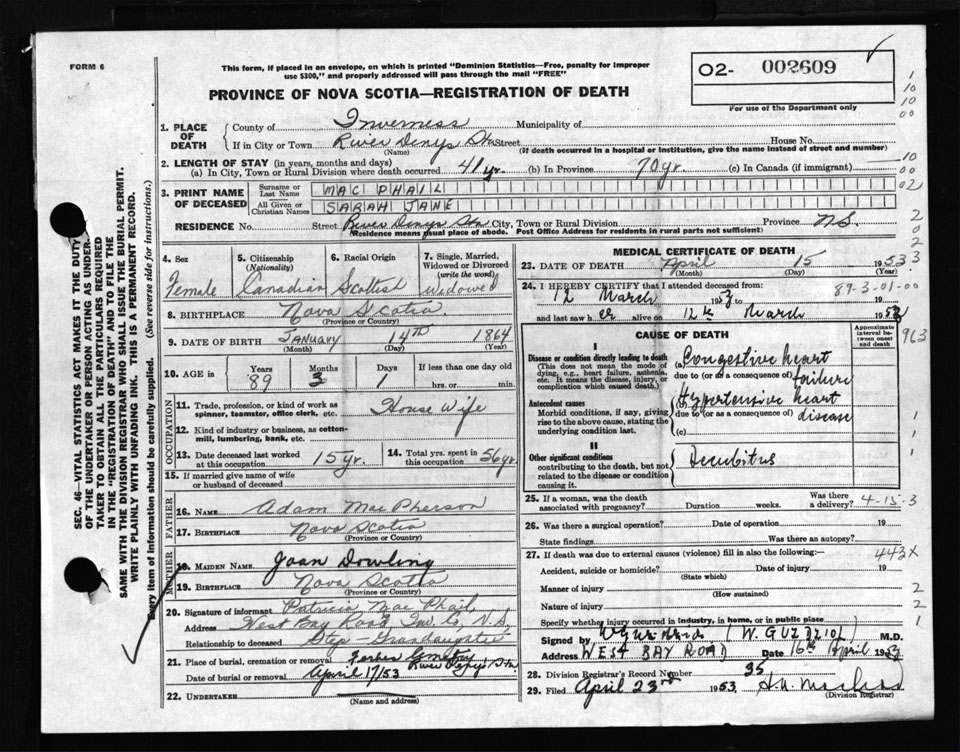 FORM 6
This form, if placed in an envelope, on which is printed "Dominion Statistics—Free, penalty for improper
use $300," and properly addressed will pass through the mail "FREE"
PROVINCE OF NOVA SCOTIA—REGISTRATION OF DEATH
O2- 002609
For use of the Department only
1. PLACE OF DEATH
County of Inverness Municipality of
If in City or Town River Denys Sta Street House No.
(Name) (If death occurred in a hospital or institution, give the name instead of street and number)
2. LENGTH OF STAY (in years, months and days)
(a) In City, Town or Rural Division where death occurred 41 yr. (b) In Province 70 yr. (c) In Canada (if immigrant)
3. PRINT NAME OF DECEASED
Surname or Last Name MAC PHAIL
All Given or Christian Names SARAH JANE
RESIDENCE No. Street River Denys Sta City, Town or Rural Division Province N.S
(Residence means usual place of abode. Post Office Address for residents in rural parts not sufficient)
4. Sex
Female
5. Citizenship
(Nationality)
Canadian
6. Racial Origin
Scottish
7. Single, Married,
Widowed or Divorced
(write the word)
Widowed
8. BIRTHPLACE Nova Scotia
(Province or Country)
9. DATE OF BIRTH January 14th 1864
(Month) (Day) (Year)
10. AGE in
Years Months Days If less than one day old
89 3 1 hrs. or min.
OCCUPATION
11. Trade, profession, or kind of work as
spinner, teamster, office clerk, etc. House Wife
12. Kind of industry or business, as cotton-
mill, lumbering, bank, etc.
13. Date deceased last worked
at this occupation 15 yr.
14. Total yrs. spent in
this occupation 56 yr.
15. If married give name of wife
or husband of deceased
FATHER
16. Name Adam MacPherson
17. Birthplace Nova Scotia
(Province or Country)
MOTHER
18. MAIDEN NAME Joan Dowling
19. BIRTHPLACE Nova Scotia
(Province or Country)
20. Signature of informant Patricia MacPhail
Address West Bay Road Inv. Co, N.S,
Relationship to deceased Step-Grandaughter
21. Place of burial, cremation or removal Cemetery River Denys Sta
Date of burial or removal April 17/53
22. UNDERTAKER
(Name and address)
MEDICAL CERTIFICATE OF DEATH
23. DATE OF DEATH April 15 1953
(Month) (Day) (Year)
24. I HEREBY CERTIFY that I attended deceased from:
12 March 1953 to 19
and last saw her alive on 12th March 1953
89-3-01-00
CAUSE OF DEATH
Approximate
interval between
onset and death
I
Disease or condition directly leading to death
(This does not mean the mode of
dying, e.g., heart failure, asthenia,
etc. It means the disease, injury, or
complication which caused death.)
(a) Congestive heart
due to (or as a consequence of) failure
Antecedent causes
Morbid conditions, if any, giving
rise to the above cause, stating the
underlying condition last.
(b) Hypertensive heart
due to (or as a consequence of) disease
(c)
II
Other significant conditions
contributing to the death, but not
related to the disease or condition
causing it.
Decubitus
25. If a woman, was the death
associated with pregnancy? Duration weeks. Was there
a delivery?
4-15-3
26. Was there a surgical operation? Date of operation 19
State findings Was there an autopsy?
27. If death was due to external causes (violence) fill in also the following:—
443X
Accident, suicide or homicide? Date of injury 19
(State which)
Manner of injury
(How sustained)
Nature of injury
Specify whether injury occurred in industry, in home, or in public place
Signed by (W. GUZDZIOL) M.D.
Address WEST BAY ROAD Date 16th April 1953
28. Division Registrar's Record Number 35
29. Filed April 23rd 1953
(Division Registrar)
SEC. 46—VITAL STATISTICS ACT MAKES IT THE DUTY
OF THE UNDERTAKER OR PERSON ACTING AS UNDER-
TAKER TO OBTAIN ALL THE PARTICULARS REQUIRED
IN THE "REGISTRATION OF DEATH" AND TO FILE THE
SAME WITH THE DIVISION REGISTRAR WHO SHALL ISSUE THE BURIAL PERMIT.
WRITE PLAINLY WITH UNFADING INK. THIS IS A PERMANENT RECORD.
Every item of information should be carefully supplied. (See reverse side for instructions.)
1
10
10
00
10
00
02
2
0
2
3
963
1
1
1
2
2
1